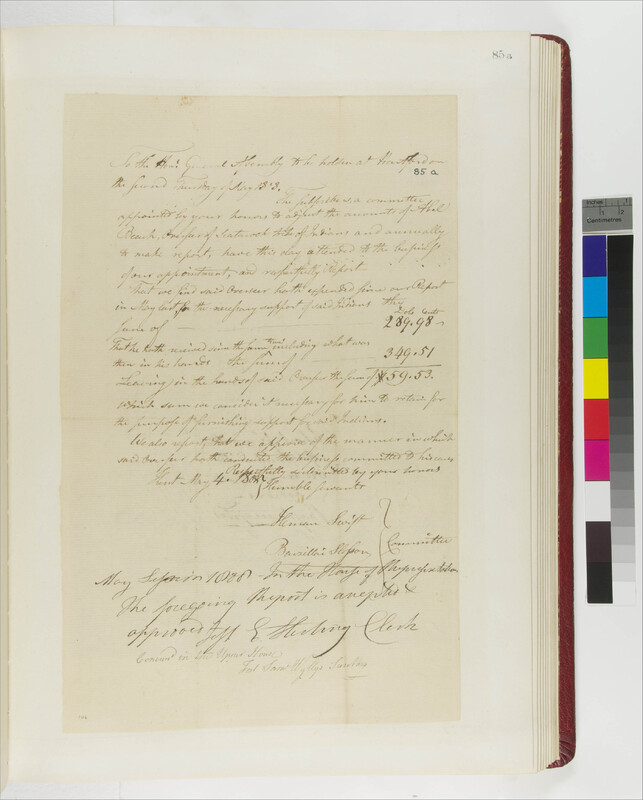 85 a
To the Hon. General Assembly to be holden at Hartford on
the second Thursday of May
85 a
The subscribers a committee
appointed by your honors to adjust the accounts of Abel
Beach, Overseer of Scatacook tribe of Indians and annually
to make report, have this day attended to the business
of our appointment, and respectfully Report
That we find said Overseer hath expended since our Report
in May last, for the necessary support of said Indians the
Dols Cents
Sum of — 289.98
That he hath received in the same time including what was
then in his hands the sum of 349.51
Leaving in the hands of said Overseer the sum of $59.53.
Which sum we consider it necessary for him to retain for
the purpose of furnishing support for said Indians.
We also report, that we approve of the manner in which
said Overseer hath conducted the business committed to his care
Respectfully submitted by your honors
Kent May 4
Humble Servants
Heman Swift
Committee
May Session In the House of Representatives
The foregoing Report is accepted &
approved Test E Sterling Clerk
Concurr'd in the Upper House
Test Sam Wyllys Secretr
Inches
Centimetres